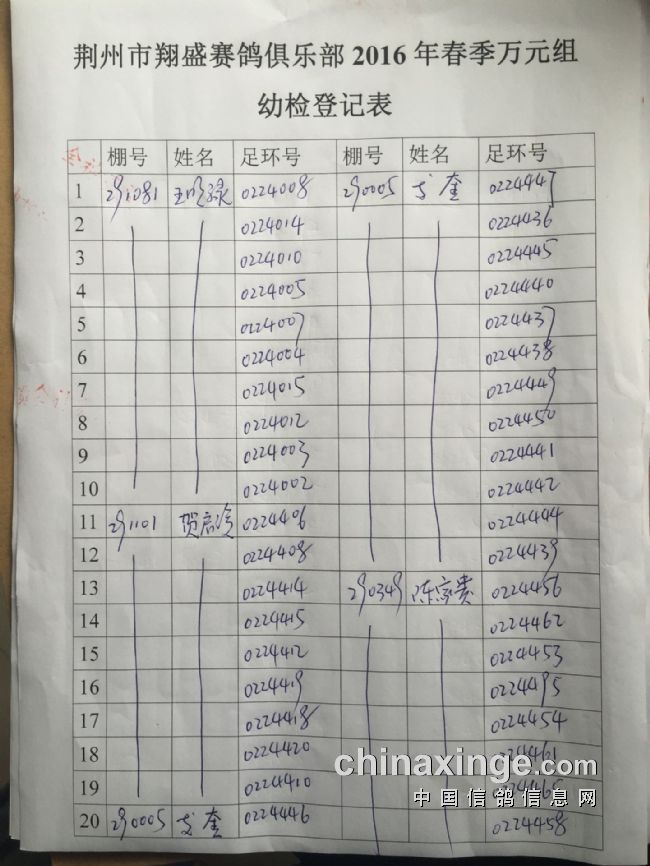 荆州市翔盛赛鸽俱乐部 2016 年春季万元组
幼检登记表
棚号 姓名 足环号 棚号 姓名 足环号
1 291081 0224008 290005 支奎 0224447
2 0224014 0224436
3 0224010 0224445
4 0224005 0224440
5 0224007 0224437
6 0224004 0224438
7 0224015 0224449
8 0224012 0224450
9 0224003 0224441
10 0224002 0224442
11 291101 0224406 0224444
12 0224408 0224439
13 0224414 290349 陈家贵 0224456
14 0224415 0224462
15 0224412 0224453
16 0224419 0224495
17 0224418 0224454
18 0224420 0224461
19 0224410 0224465
20 290005 支奎 0224446 0224458
chinaxinge.com
中国信鸽信息网